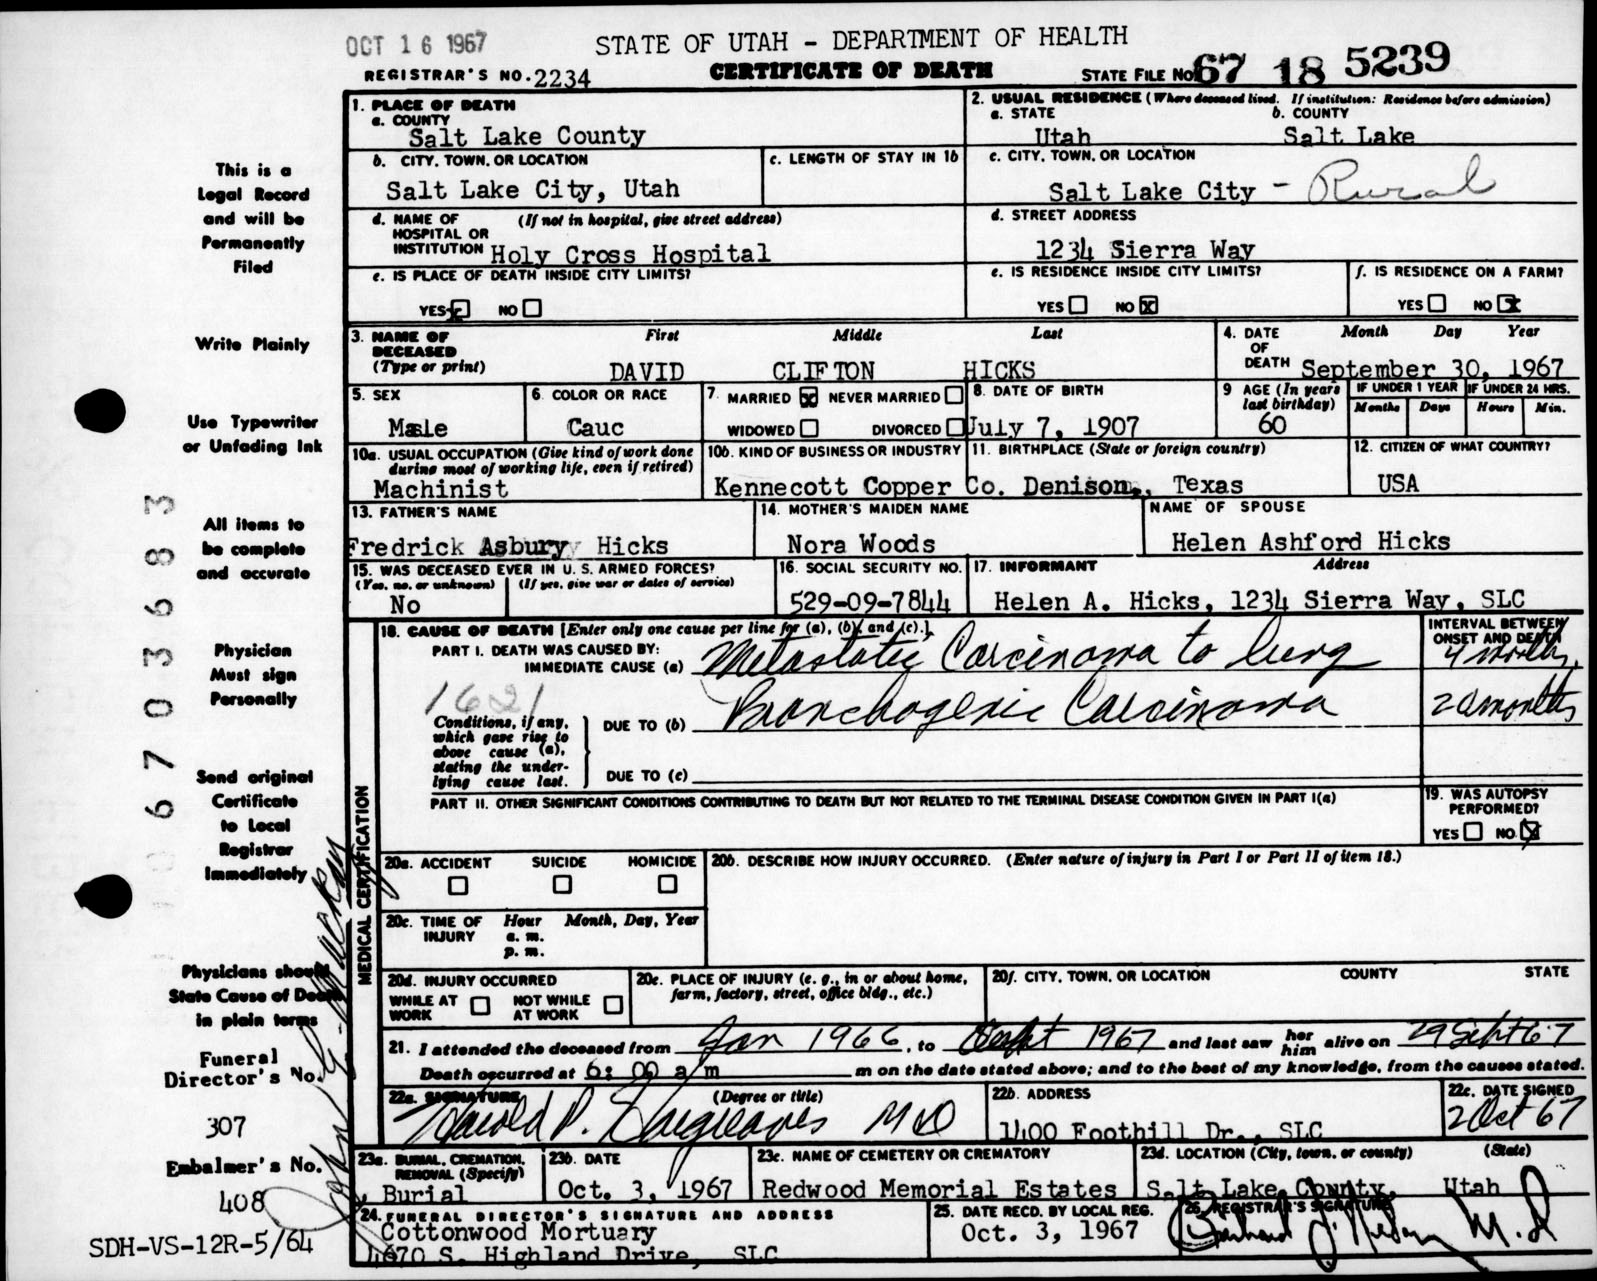 OCT 16 1967
STATE OF UTAH - DEPARTMENT OF HEALTH
CERTIFICATE OF DEATH
REGISTRAR'S NO. 2234
STATE FILE NO 67 18 5239
1. PLACE OF DEATH
a. COUNTY
Salt Lake County
2. USUAL RESIDENCE (Where deceased lived. If institution: Residence before admission)
a. STATE b. COUNTY
Utah Salt Lake
b. CITY, TOWN, OR LOCATION
Salt Lake City, Utah
c. LENGTH OF STAY IN 1b
c. CITY, TOWN, OR LOCATION
Salt Lake City - Rural
d. NAME OF HOSPITAL OR INSTITUTION (If not in hospital, give street address)
Holy Cross Hospital
d. STREET ADDRESS
1234 Sierra Way
e. IS PLACE OF DEATH INSIDE CITY LIMITS?
YES NO
e. IS RESIDENCE INSIDE CITY LIMITS?
YES NO X
f. IS RESIDENCE ON A FARM?
YES NO X
3. NAME OF DECEASED (Type or print)
First Middle Last
DAVID CLIFTON HICKS
4. DATE OF DEATH Month Day Year
September 30, 1967
5. SEX
Male
6. COLOR OR RACE
Cauc
7. MARRIED X NEVER MARRIED
WIDOWED DIVORCED
8. DATE OF BIRTH
July 7, 1907
9 AGE (In years last birthday)
60
IF UNDER 1 YEAR IF UNDER 24 HRS.
Months Days Hours Min.
10a. USUAL OCCUPATION (Give kind of work done during most of working life, even if retired)
Machinist
10b. KIND OF BUSINESS OR INDUSTRY
Kennecott Copper Co.
11. BIRTHPLACE (State or foreign country)
Denison, Texas
12. CITIZEN OF WHAT COUNTRY?
USA
13. FATHER'S NAME
Fredrick Asbury Hicks
14. MOTHER'S MAIDEN NAME
Nora Woods
NAME OF SPOUSE
Helen Ashford Hicks
15. WAS DECEASED EVER IN U. S. ARMED FORCES?
(Yes, no, or unknown) (If yes, give war or dates of service)
No
16. SOCIAL SECURITY NO.
529-09-7844
17. INFORMANT Address
Helen A. Hicks, 1234 Sierra Way, SLC
MEDICAL CERTIFICATION
18. CAUSE OF DEATH [Enter only one cause per line for (a), (b), and (c).]
INTERVAL BETWEEN ONSET AND DEATH
PART I. DEATH WAS CAUSED BY:
IMMEDIATE CAUSE (a) Metastatic Carcinoma to lung 4 months
1621
Conditions, if any, which gave rise to above cause (a), stating the underlying cause last.
DUE TO (b) Bronchogenic Carcinoma 20 months
DUE TO (c)
PART II. OTHER SIGNIFICANT CONDITIONS CONTRIBUTING TO DEATH BUT NOT RELATED TO THE TERMINAL DISEASE CONDITION GIVEN IN PART I(a)
19. WAS AUTOPSY PERFORMED?
YES NO X
20a. ACCIDENT SUICIDE HOMICIDE
20b. DESCRIBE HOW INJURY OCCURRED. (Enter nature of injury in Part I or Part II of item 18.)
20c. TIME OF INJURY Hour Month, Day, Year
a. m.
p. m.
20d. INJURY OCCURRED
WHILE AT WORK NOT WHILE AT WORK
20e. PLACE OF INJURY (e. g., in or about home, farm, factory, street, office bldg., etc.)
20f. CITY, TOWN, OR LOCATION COUNTY STATE
21. I attended the deceased from Jan 1966, to Sept 1967 and last saw her him alive on 29 Sept 67
Death occurred at 6:00 a/m m on the date stated above; and to the best of my knowledge, from the causes stated.
22a. SIGNATURE (Degree or title)
Harold P. Hargreaves MD
22b. ADDRESS
1400 Foothill Dr., SLC
22c. DATE SIGNED
2 Oct 67
23a. BURIAL, CREMATION, REMOVAL (Specify)
Burial
23b. DATE
Oct. 3, 1967
23c. NAME OF CEMETERY OR CREMATORY
Redwood Memorial Estates
23d. LOCATION (City, town, or county) (State)
Salt Lake County, Utah
24. FUNERAL DIRECTOR'S SIGNATURE AND ADDRESS
Cottonwood Mortuary
4670 S. Highland Drive, SLC
25. DATE RECD. BY LOCAL REG.
Oct. 3, 1967
26. REGISTRAR'S SIGNATURE
M.D.
This is a
Legal Record
and will be
Permanently
Filed
Write Plainly
Use Typewriter
or Unfading Ink
All items to
be complete
and accurate
Physician
Must sign
Personally
Send original
Certificate
to Local
Registrar
Immediately
Physicians should
State Cause of Death
in plain terms
Funeral
Director's No.
307
Embalmer's No.
408
SDH-VS-12R-5/64
6703683